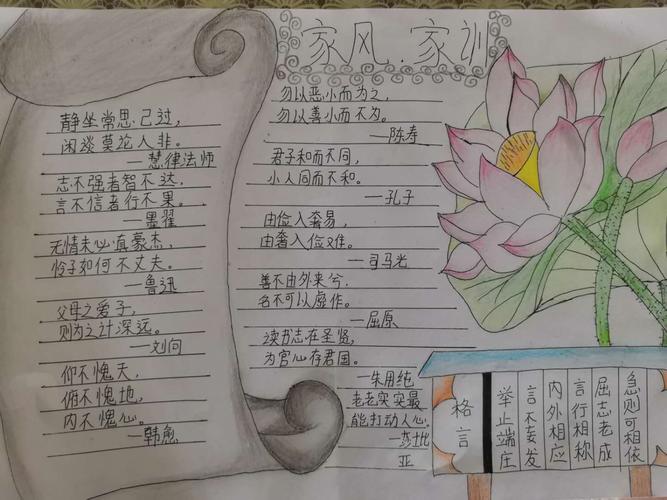 家风.家训
静坐常思己过，
闲谈莫论人非。
—慧律法师
志不强者智不达，
言不信者行不果。
—墨翟
无情未必真豪杰，
怜子如何不丈夫。
—鲁迅
父母之爱子，
则为之计深远。
—刘向
仰不愧天，
俯不愧地，
内不愧心。
—韩愈
勿以恶小而为之，
勿以善小而不为。
—陈寿
君子和而不同，
小人同而不和。
—孔子
由俭入奢易，
由奢入俭难。
—司马光
善不由外来兮，
名不可以虚作。
—屈原
读书志在圣贤，
为官心存君国。
—朱用纯
老老实实最
能打动人心。
—莎士比
亚
急则可相依
屈志老成
言行相称
内外相应
言不妄发
举止端庄
格言